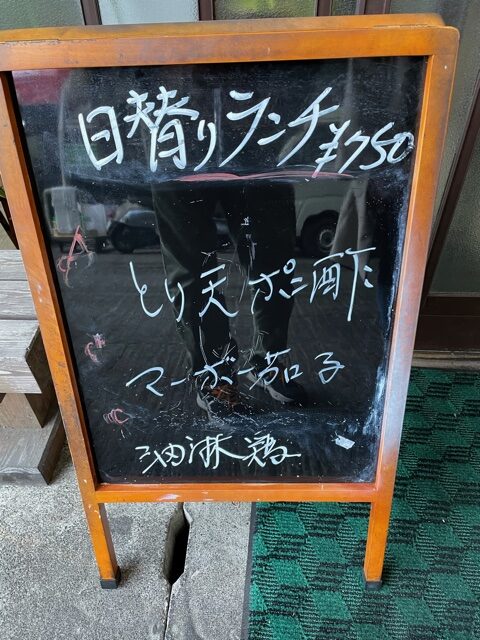 日替りランチ ¥750
A とり天ポン酢
B マーボー茄子
C 油淋鶏